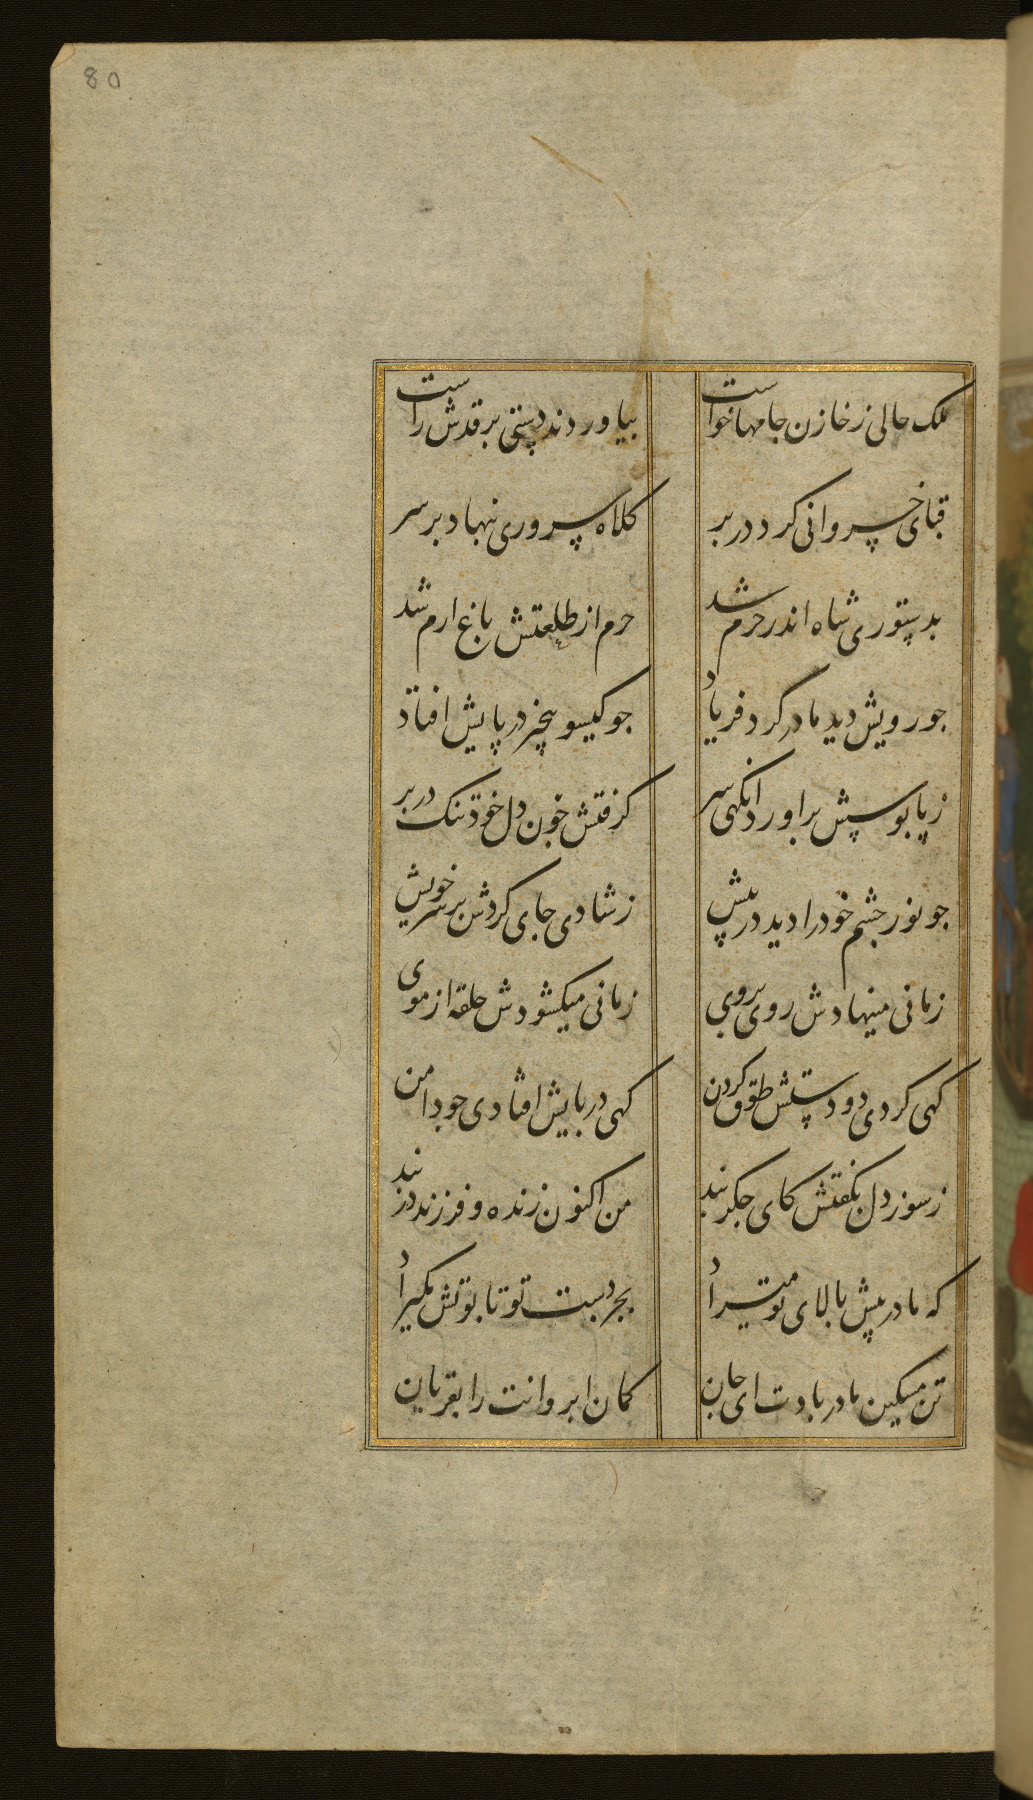 80
ملک حالی ز خازن جامها خواست بیاوردند دستی بر قدش راست
قبای خسروانی کرد در بر کلاه سروری بنهاد بر سر
بدستوری شاه اندر حرم شد حرم از طلعتش باغ ارم شد
جو رویش دید مادر کرد فریاد جو کیسو بیخبر در پایش افتاد
ز پا بوسش براورد انکهی سر کرفتش خون دل خود تنک در بر
جو نور جشم خود را دید در پیش ز شادی جای کردش بر سر خویش
زمانی مینهادش روی بر روی زمانی میکشودش حلقه از موی
کهی کردی دو دستش طوق کردن کهی در پایش افتادی جو دامن
ز سوز دل بکفتش کای جکر بند من اکنون زنده و فرزند در بند
که مادر پیش بالای تو میراد بجز دست تو تابوتش مکیراد
تن مسکین مادر بادت ای جان کمان ابروانت را بقربان